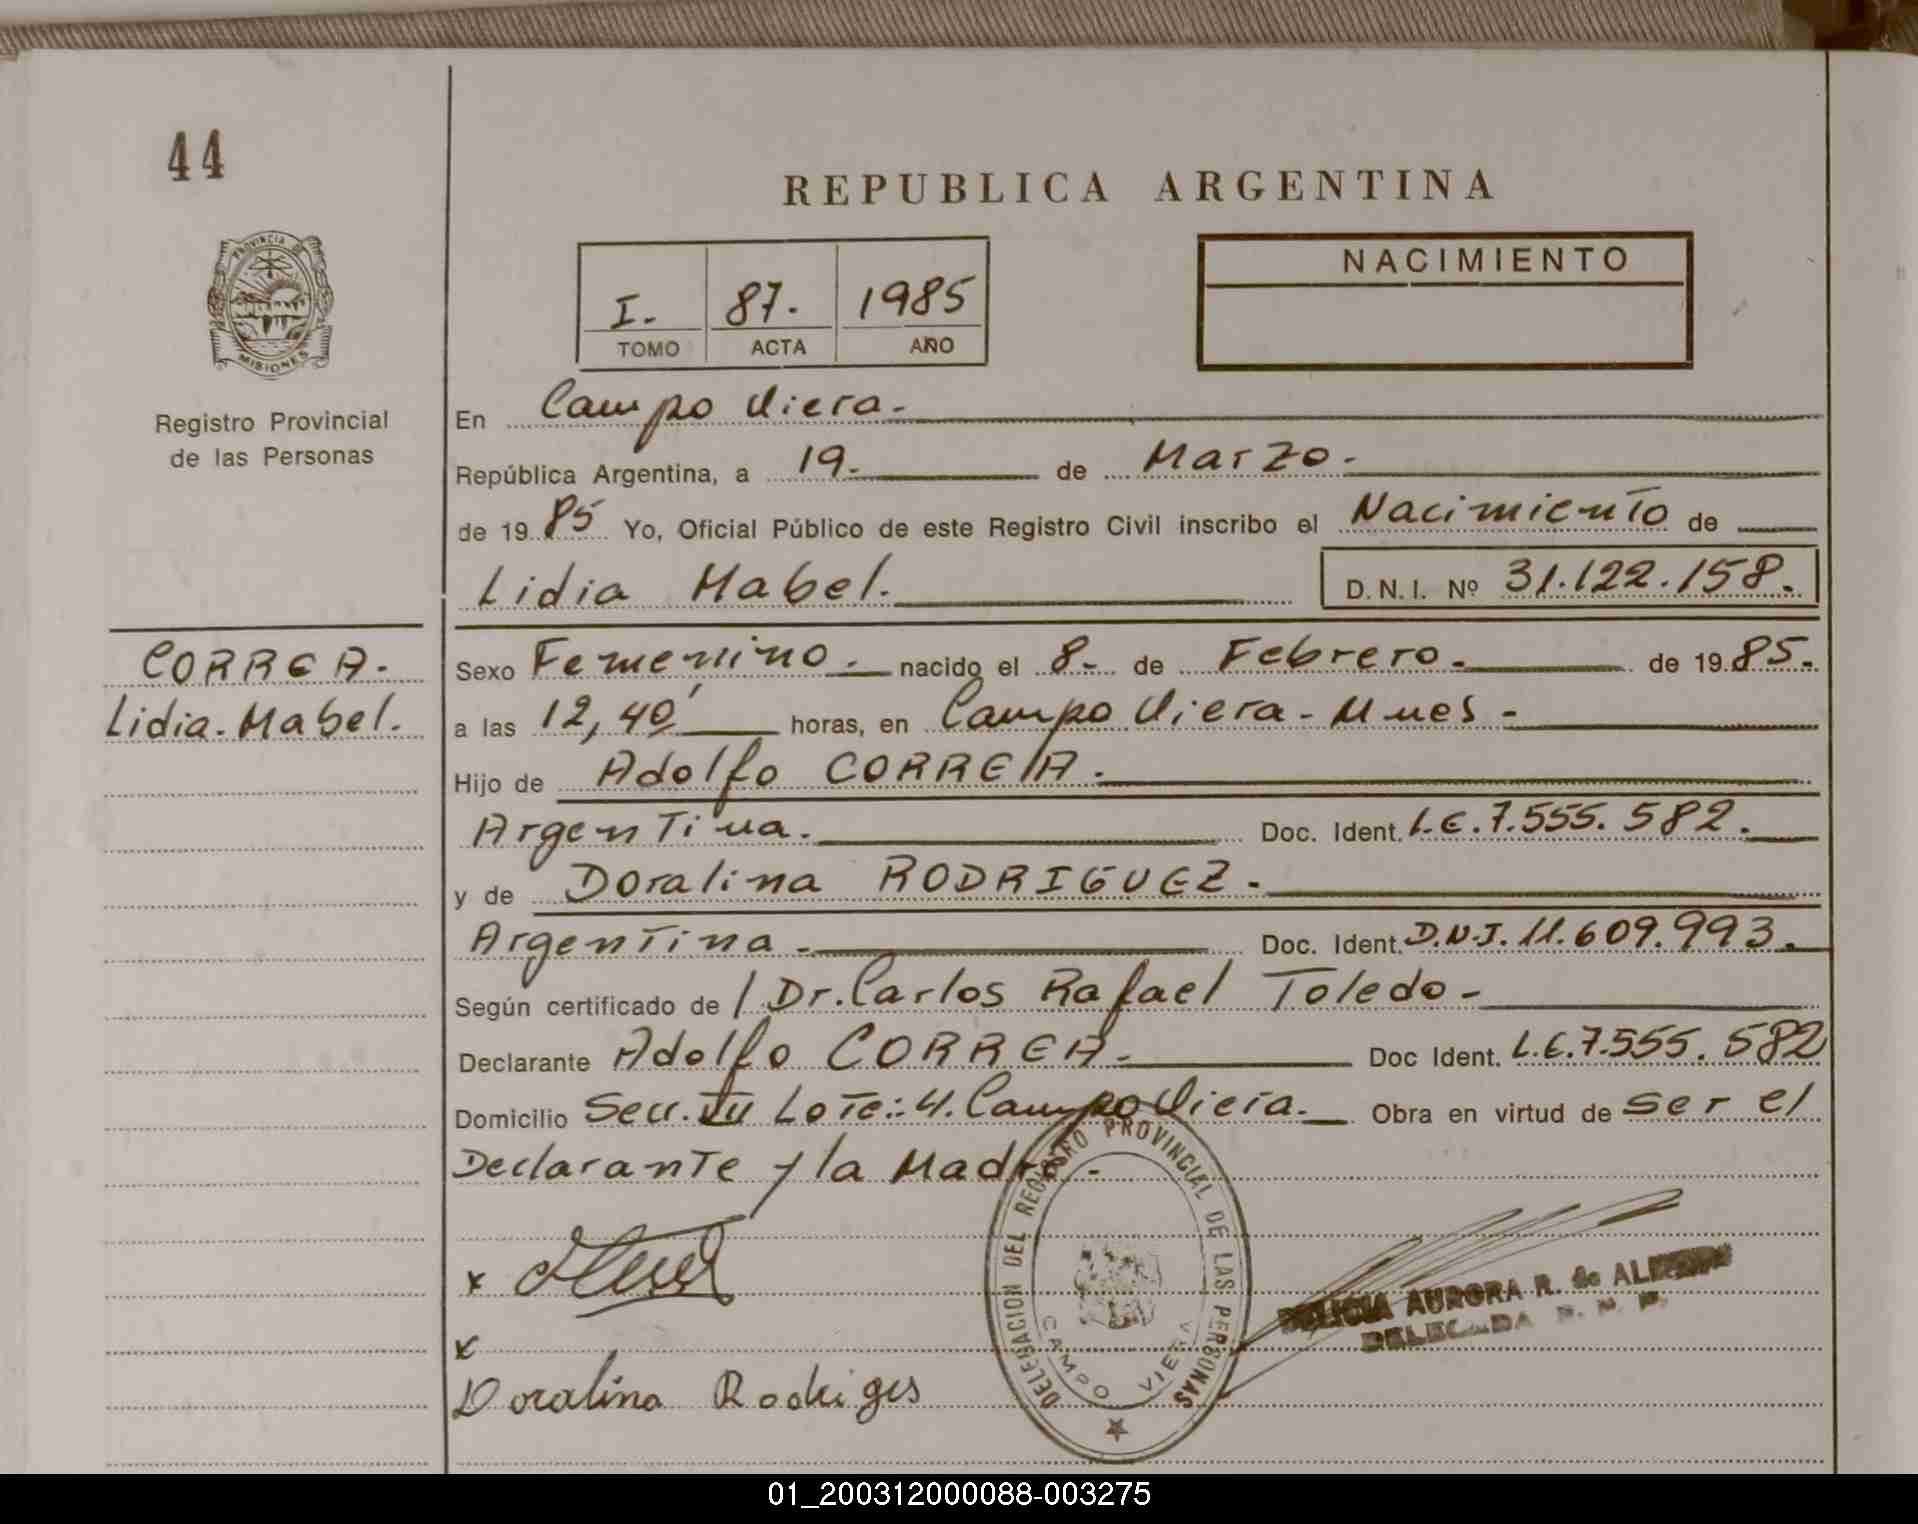 44
PROVINCIA DE
MISIONES
Registro Provincial
de las Personas
CORREA.
Lidia. Mabel.
REPUBLICA ARGENTINA
I. 87. 1985
TOMO ACTA AÑO
NACIMIENTO
En Campo Viera.
República Argentina, a 19. de Marzo.
de 19 85 Yo, Oficial Público de este Registro Civil inscribo el Nacimiento de
Lidia Mabel. D.N.I. Nº 31.122.158.
Sexo Femenino. nacido el 8. de Febrero. de 19 85.
a las 12,40' horas, en Campo Viera - Mnes -
Hijo de Adolfo CORREA.
Argentina. Doc. Ident. L.E. 7.555.582.
y de Doralina RODRIGUEZ.
Argentina. Doc. Ident. D.N.I. 11.609.993.
Según certificado de Dr. Carlos Rafael Toledo -
Declarante Adolfo CORREA. Doc Ident. L.E. 7.555.582
Domicilio Secc. Lote: 4. Campo Viera. Obra en virtud de ser el
Declarante y la Madre.
x
x
Doralina Rodriges
DELEGACION DEL REGISTRO PROVINCIAL DE LAS PERSONAS
CAMPO VIERA
DELICIA AURORA R. de
DELEGADA
01_200312000088-003275